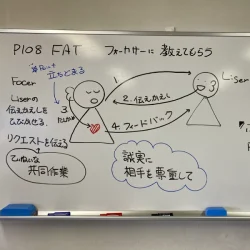 P108 FAT フォーカサーに教えてもらう
立ちどまる
Focer
Liserの
伝えかえしを
ひびかせる。
リクエストを伝える
ていねいな
共同作業
1.
2. 伝えかえし
3
4. フィードバック
Liser
誠実に
相手を尊重して